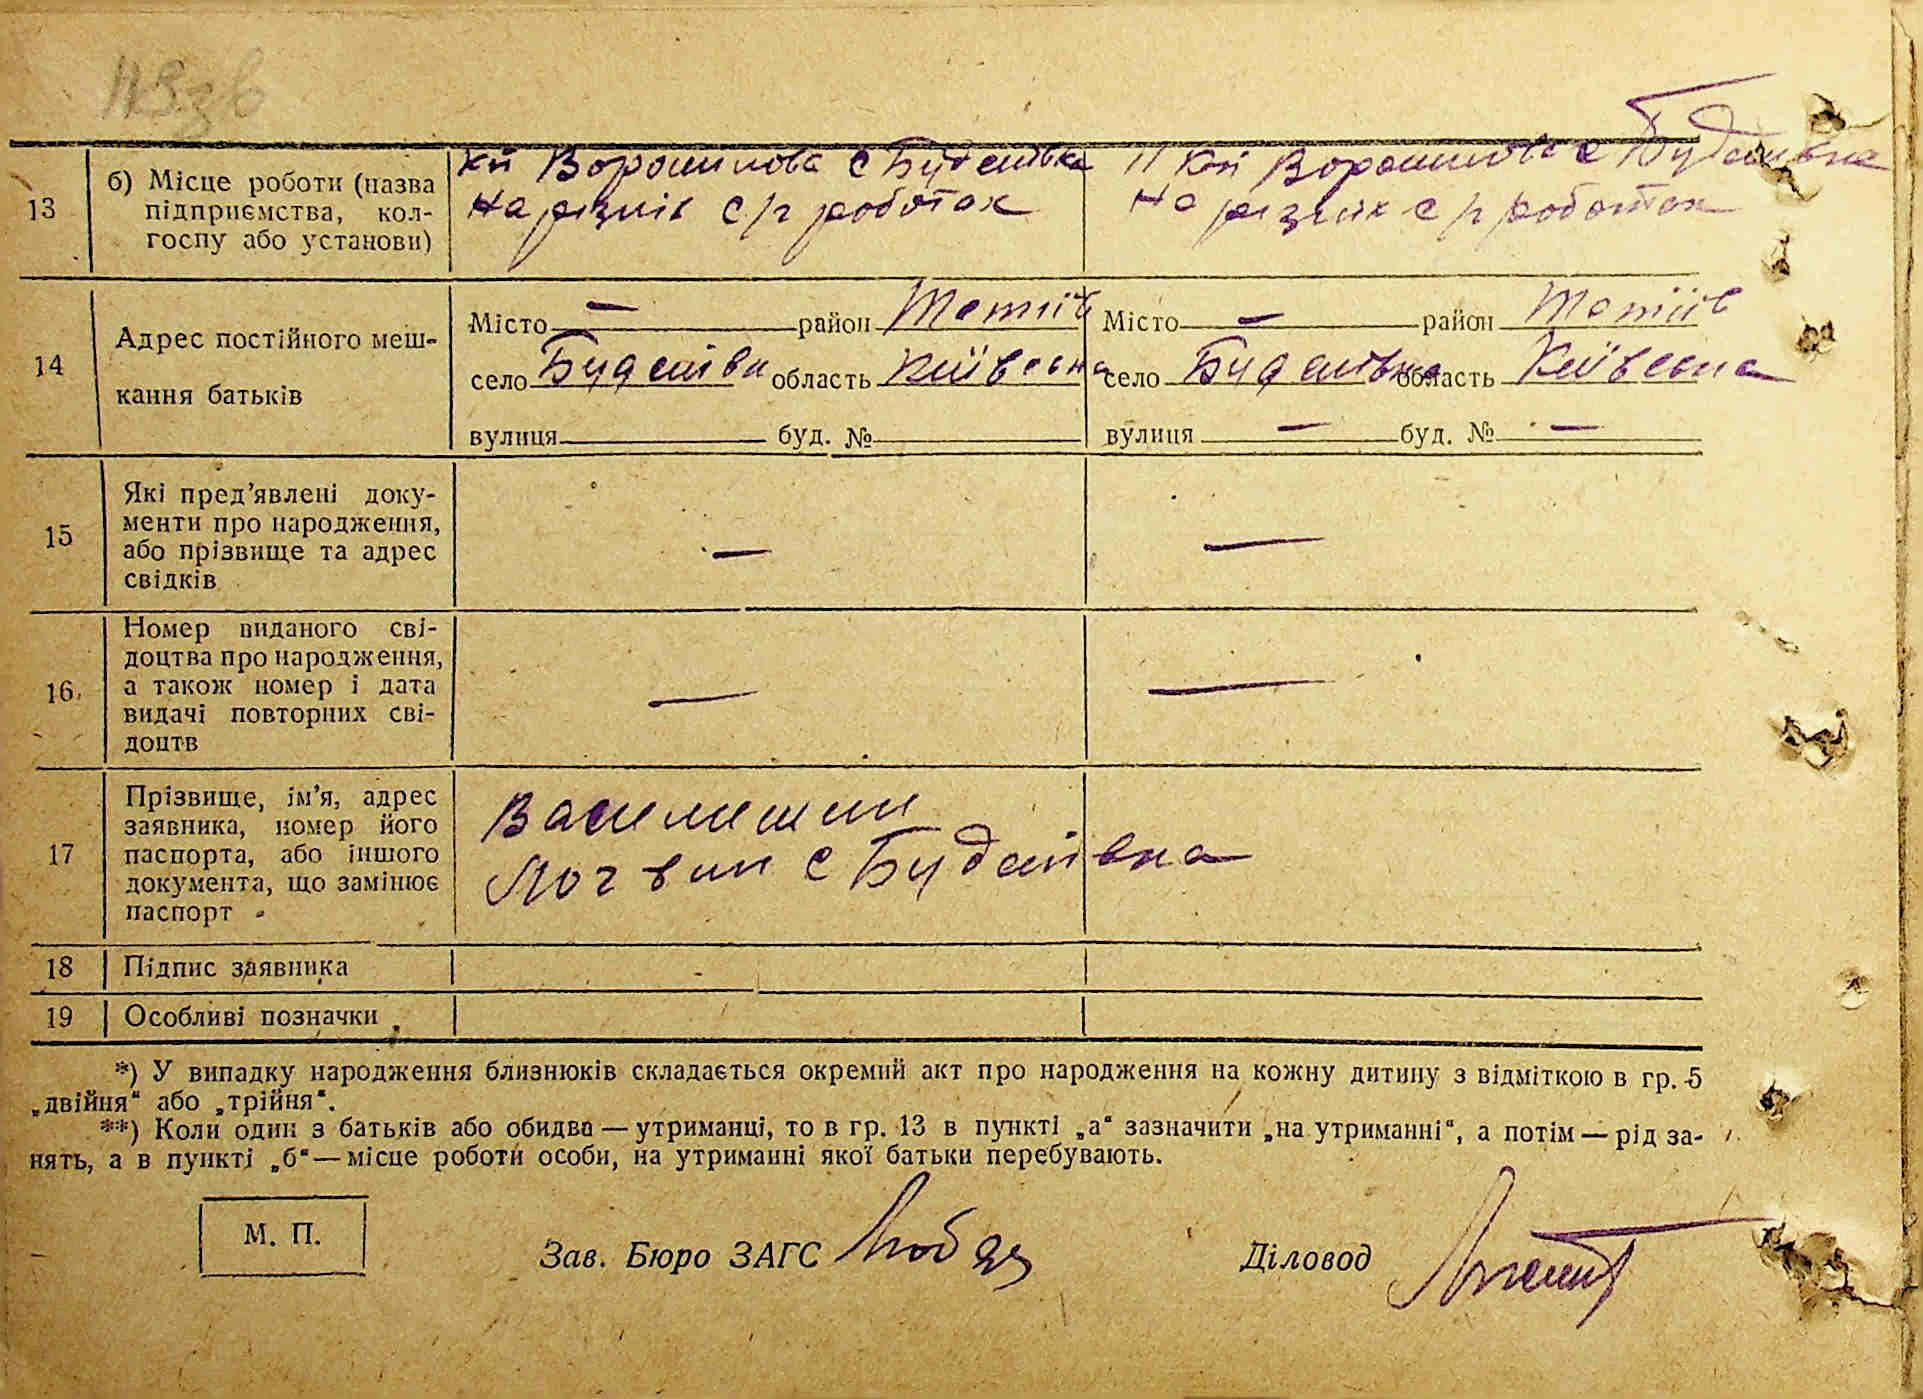 13
б) Місце роботи (назва
підприємства, кол-
госпу або установи)
Ворошилова с Буденівка
На різніх с/г роботах
Ворошилова с Буденівка
На різних с/г роботах
14
Адрес постійного меш-
кання батьків
Місто — район Тетіїв
село Буденівка область Київська
вулиця буд. №
Місто — район Тетіїв
село Буденівка область Київська
вулиця — буд. № —
15
Які пред’явлені доку-
менти про народження,
або прізвище та адрес
свідків
—
—
16
Номер виданого сві-
доцтва про народження,
а також номер і дата
видачі повторних сві-
доцтв
—
—
17
Прізвище, ім’я, адрес
заявника, номер його
паспорта, або іншого
документа, що замінює
паспорт
Василишин
Логвин с Буденівка
18 Підпис заявника
19 Особливі позначки
*) У випадку народження близнюків складається окремий акт про народження на кожну дитину з відміткою в гр. 5
„двійня“ або „трійня“.
**) Коли один з батьків або обидва — утриманці, то в гр. 13 в пункті „а“ зазначити „на утриманні“, а потім — рід за-
нять, а в пункті „б“ — місце роботи особи, на утриманні якої батьки перебувають.
М. П.
Зав. Бюро ЗАГС
Діловод